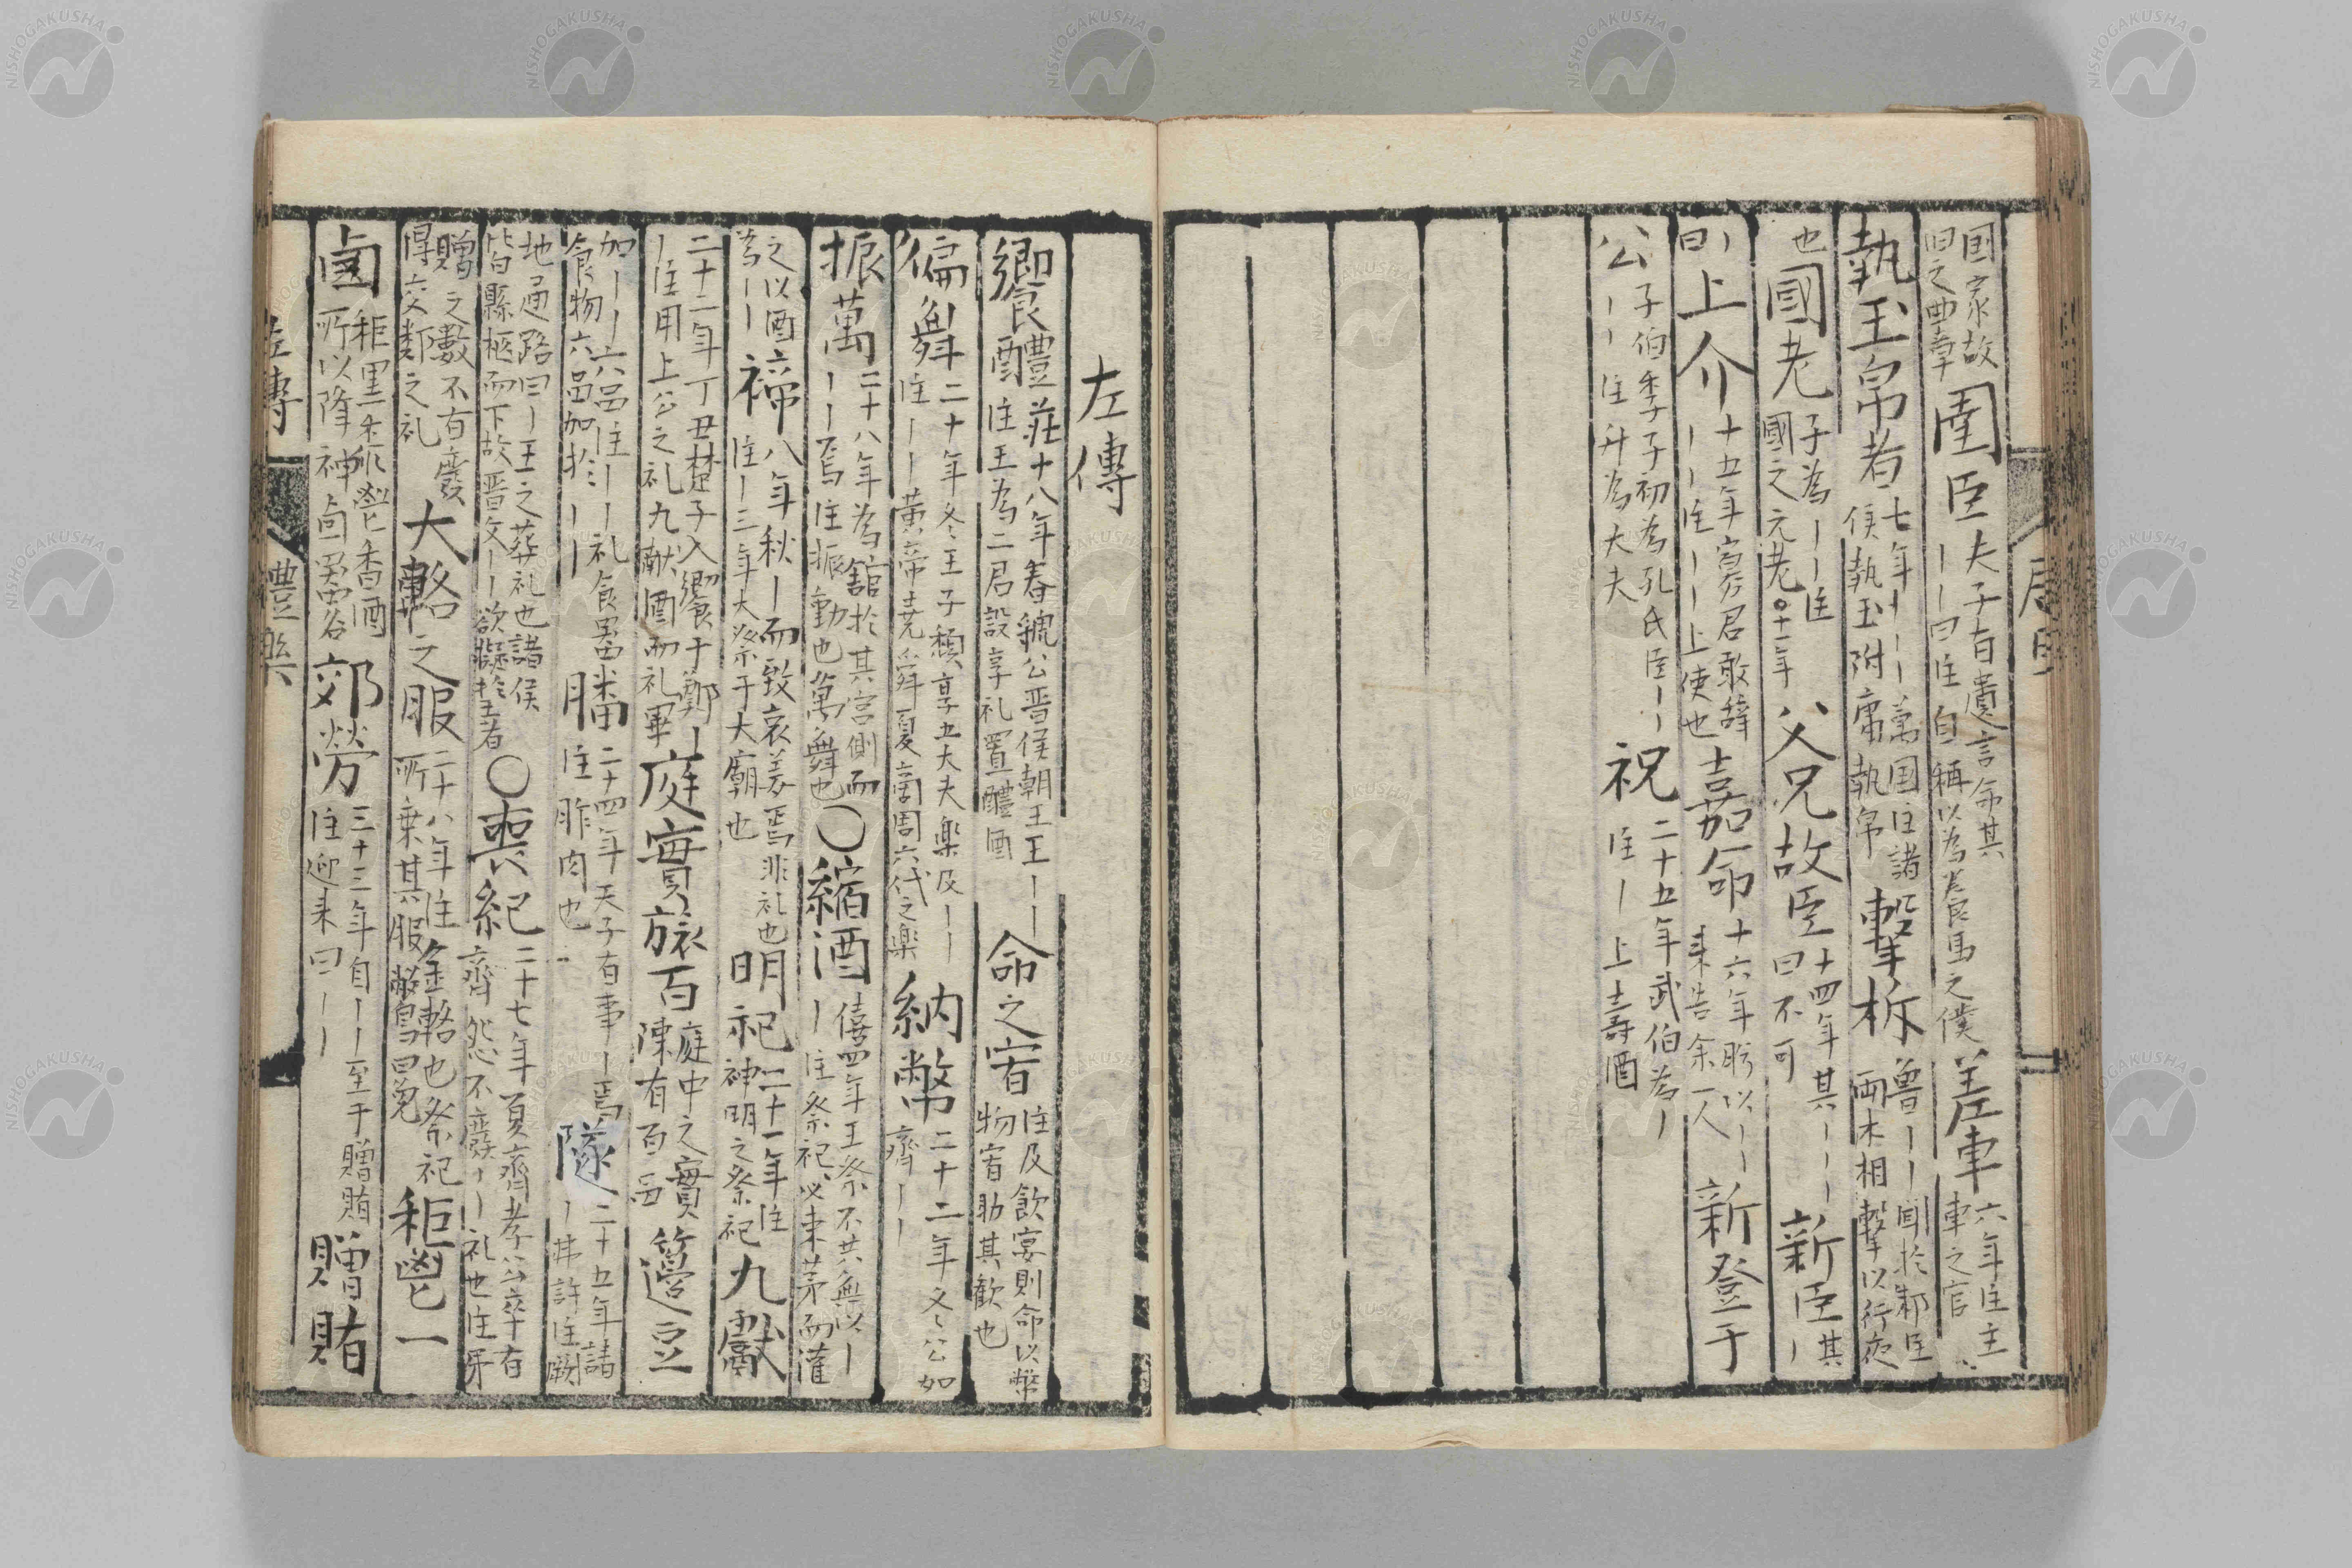 国家故
旧之典章
圉臣
夫子有遺言命其
丨丨曰注自稱以為養馬之僕
差車
六年注主
車之官
執玉帛者
七年丨丨丨萬国注諸
侯執玉附庸執帛
擊柝
魯丨丨聞於邾注
兩木相擊以行夜
也
國老
子為丨丨注
國之元老○十一年
父兄故臣
十四年其丨丨丨
曰不可
新臣
其
丨
丨
曰
上介
十五年寡君敢辞
丨丨注丨丨上使也
嘉命
十六年肸以丨丨
来告余一人
新登于
公
子伯季子初為孔氏臣丨丨
丨丨注升為大夫
祝
二十五年武伯為丨
注丨上壽酒
左傳
饗醴
莊十八年春虢公晋侯朝王王丨丨
注王為二君設享礼置醴酒
命之宥
注及飲宴則命以幣
物宥助其歓也
偏舞
二十年冬王子頽享五大夫楽及丨丨
注丨丨黄帝堯舜夏商周六代之楽
納幣
二十二年冬公如
齊丨丨
振萬
二十八年為舘於其宮側而
丨丨焉注振動也萬舞也
○縮酒
僖四年王祭不共無以丨
丨注祭祀以束茅而灌
之以酒
為丨丨
禘
八年秋丨而致哀姜焉非礼也
注丨三年大祭于大廟也
明祀
二十一年注
神明之祭祀
九獻
二十二年丁丑楚子入饗于鄭丨
丨注用上公之礼九献酒而礼畢
庭實旅百
庭中之實
陳有百品
籩豆
加丨丨六品注丨丨礼食畢
食物六品加於丨丨
膰
二十四年天子有事丨焉
注胙肉也
隧
二十五年請
丨弗許注闕
地通路曰丨王之葬礼也諸侯
皆縣柩而下故晋文丨丨欲擬於王者
○喪紀
二十七年夏齊孝公卒有
齊怨不廢丨丨礼也注弔
贈之數不有廢
得交鄰之礼
大輅之服
二十八年注金輅也祭祀
所乗其服鷩冕曰冕
秬鬯一
卣
秬黒黍鬯香酒
所以降神卣器名
郊勞
三十三年自丨丨至于贈賄
注迎来曰丨丨
贈賄
左傳
禮樂